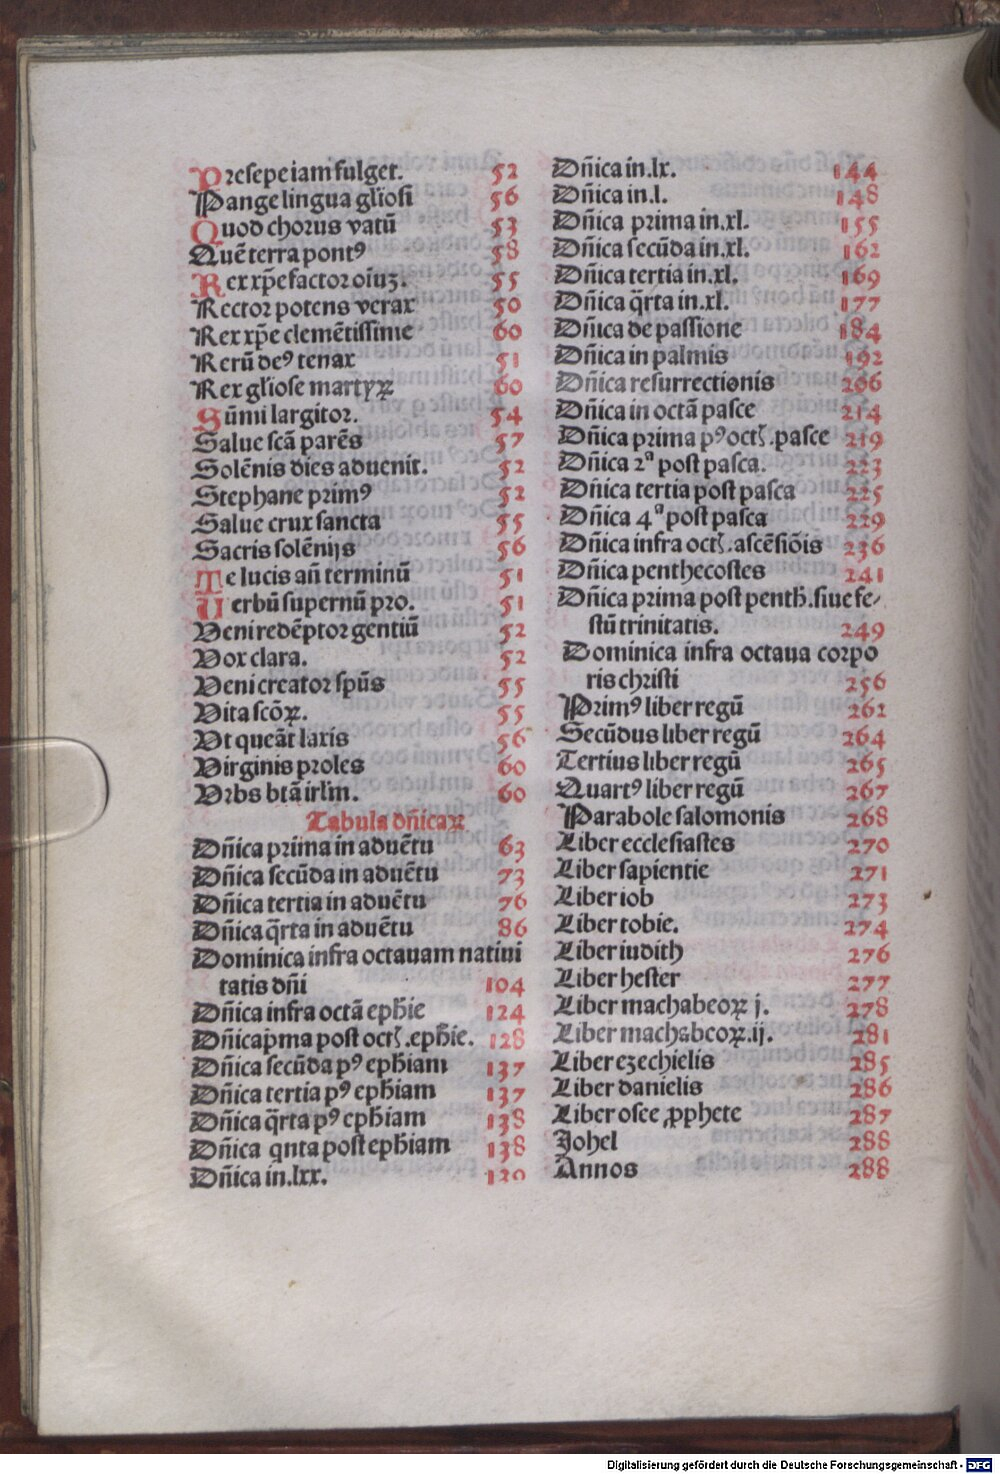 Presepe iam fulget. 52
Pange lingua gl'iosi 56
Quod chorus vatū 53
Quē terra pontꝰ 58
Rex xp̄e factor oīuʒ. 55
Rector potens verax 50
Rex xp̄e clemētissime 60
Rerū deꝰ tenax 51
Rex gl'iose martyꝝ 60
Sūmi largitor. 54
Salue scā parēs 57
Solēnis dies aduenit. 52
Stephane primꝰ 52
Salue crux sancta 55
Sacris solēnijs 56
Te lucis añ terminū 51
Uerbū supernū pro. 51
Veni redēptor gentiū 52
Vox clara. 52
Veni creator spūs 55
Vita scōꝝ. 55
Vt queāt laxis 56
Virginis proles 60
Vrbs btā irlm̄. 60
Tabula dñicaꝝ
Dñica prima in aduētu 63
Dñica secūda in aduētu 73
Dñica tertia in aduētu 76
Dñica q̄rta in aduētu 86
Dominica infra octauam natiui
tatis dñi 104
Dñica infra octā eph̄ie 124
Dñica p̄ma post octꝭ.eph̄ie. 128
Dñica secūda pꝰ eph̄iam 137
Dñica tertia pꝰ eph̄iam 137
Dñica q̄rta pꝰ eph̄iam 138
Dñica qnta post eph̄iam 138
Dñica in.lxx.
Dñica in.lx. 144
Dñica in.l. 148
Dñica prima in.xl. 155
Dñica secūda in.xl. 162
Dñica tertia in.xl. 169
Dñica q̄rta in.xl. 177
Dñica de passione 184
Dñica in palmis 192
Dñica resurrectionis 206
Dñica in octā pasce 214
Dñica prima pꝰ octꝭ.pasce 219
Dñica 2ᵃ post pasca. 223
Dñica tertia post pasca 225
Dñica 4ᵃ post pasca 229
Dñica infra octꝭ.ascēsiōis 236
Dñica penthecostes 241
Dñica prima post penth̄.siue fe⸗
stū trinitatis. 249
Dominica infra octaua corpo
ris christi 256
Primꝰ liber regū 262
Secūdus liber regū 264
Tertius liber regū 265
Quartꝰ liber regū 267
Parabole salomonis 268
Liber ecclesiastes 270
Liber sapientie 271
Liber iob 273
Liber tobie. 274
Liber iudith 276
Liber hester 277
Liber machabeoꝝ j. 278
Liber machabeoꝝ.ij. 281
Liber ezechielis 285
Liber danielis 286
Liber osee ꝓphete 287
Johel 288
Annos 288
Digitalisierung gefördert durch die Deutsche Forschungsgemeinschaft - DFG